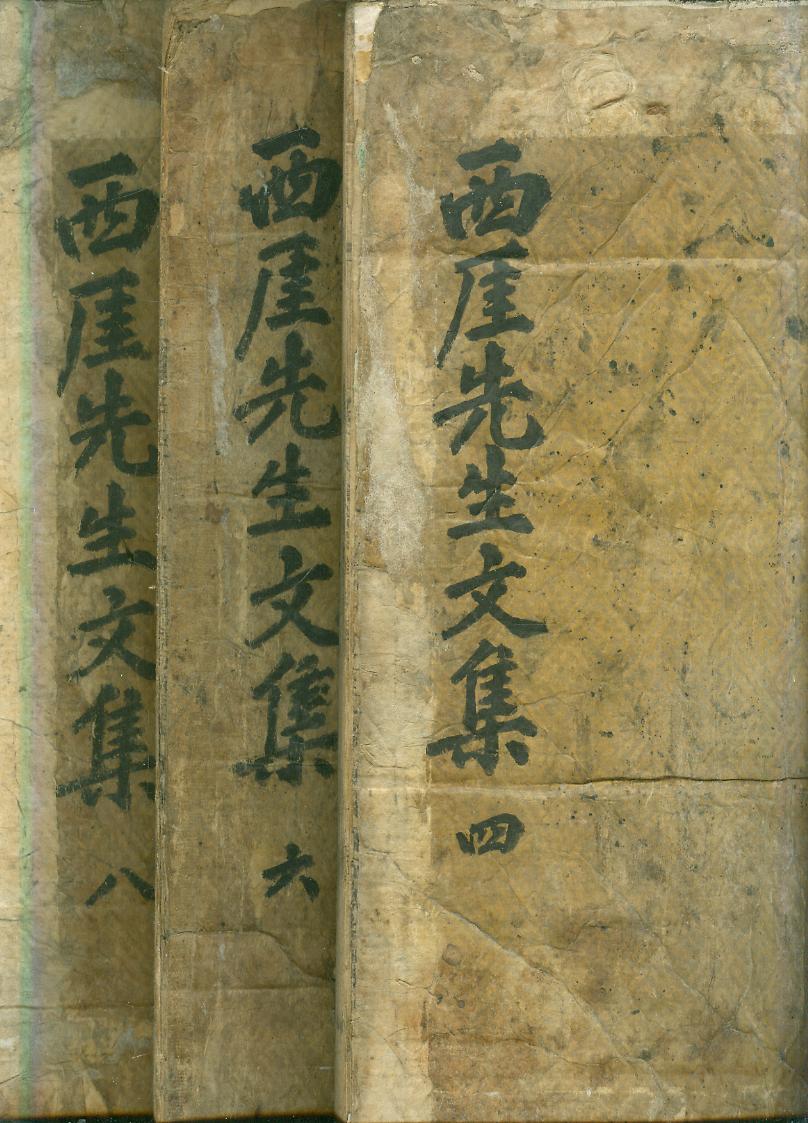 西厓先生文集 四
西厓先生文集 六
西厓先生文集 八